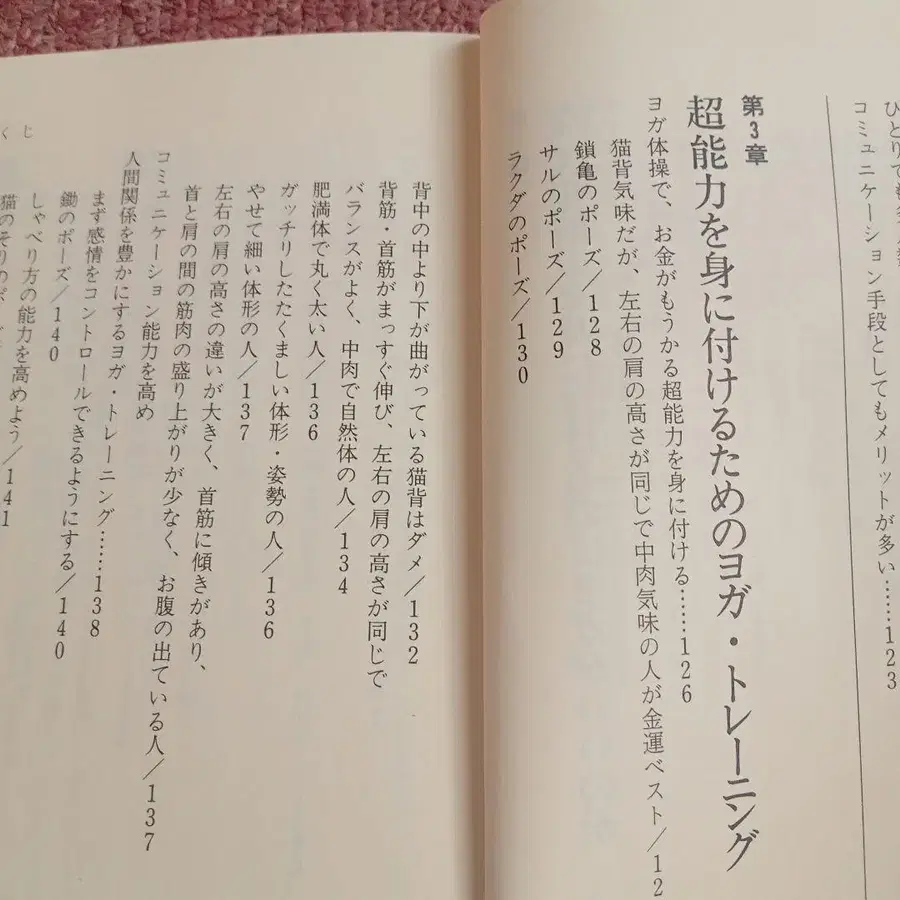 コミュニケーション手段としてもメリットが多い……123
第3章
超能力を身に付けるためのヨガ・トレーニング
ヨガ体操で、お金がもうかる超能力を身に付ける……126
猫背気味だが、左右の肩の高さが同じで中肉気味の人が金運ベスト/12
鎖亀のポーズ/128
サルのポーズ/129
ラクダのポーズ/130
背中の中より下が曲がっている猫背はダメ/132
背筋・首筋がまっすぐ伸び、左右の肩の高さが同じで
バランスがよく、中肉で自然体の人/134
肥満体で丸く太い人/136
ガッチリしたたくましい体形・姿勢の人/136
やせて細い体形の人/137
左右の肩の高さの違いが大きく、首筋に傾きがあり、
首と肩の間の筋肉の盛り上がりが少なく、お腹の出ている人/137
コミュニケーション能力を高め
人間関係を豊かにするヨガ・トレーニング……138
まず感情をコントロールできるようにする/140
鋤のポーズ/140
しゃべり方の能力を高めよう/141
猫のそりのポ
くじ